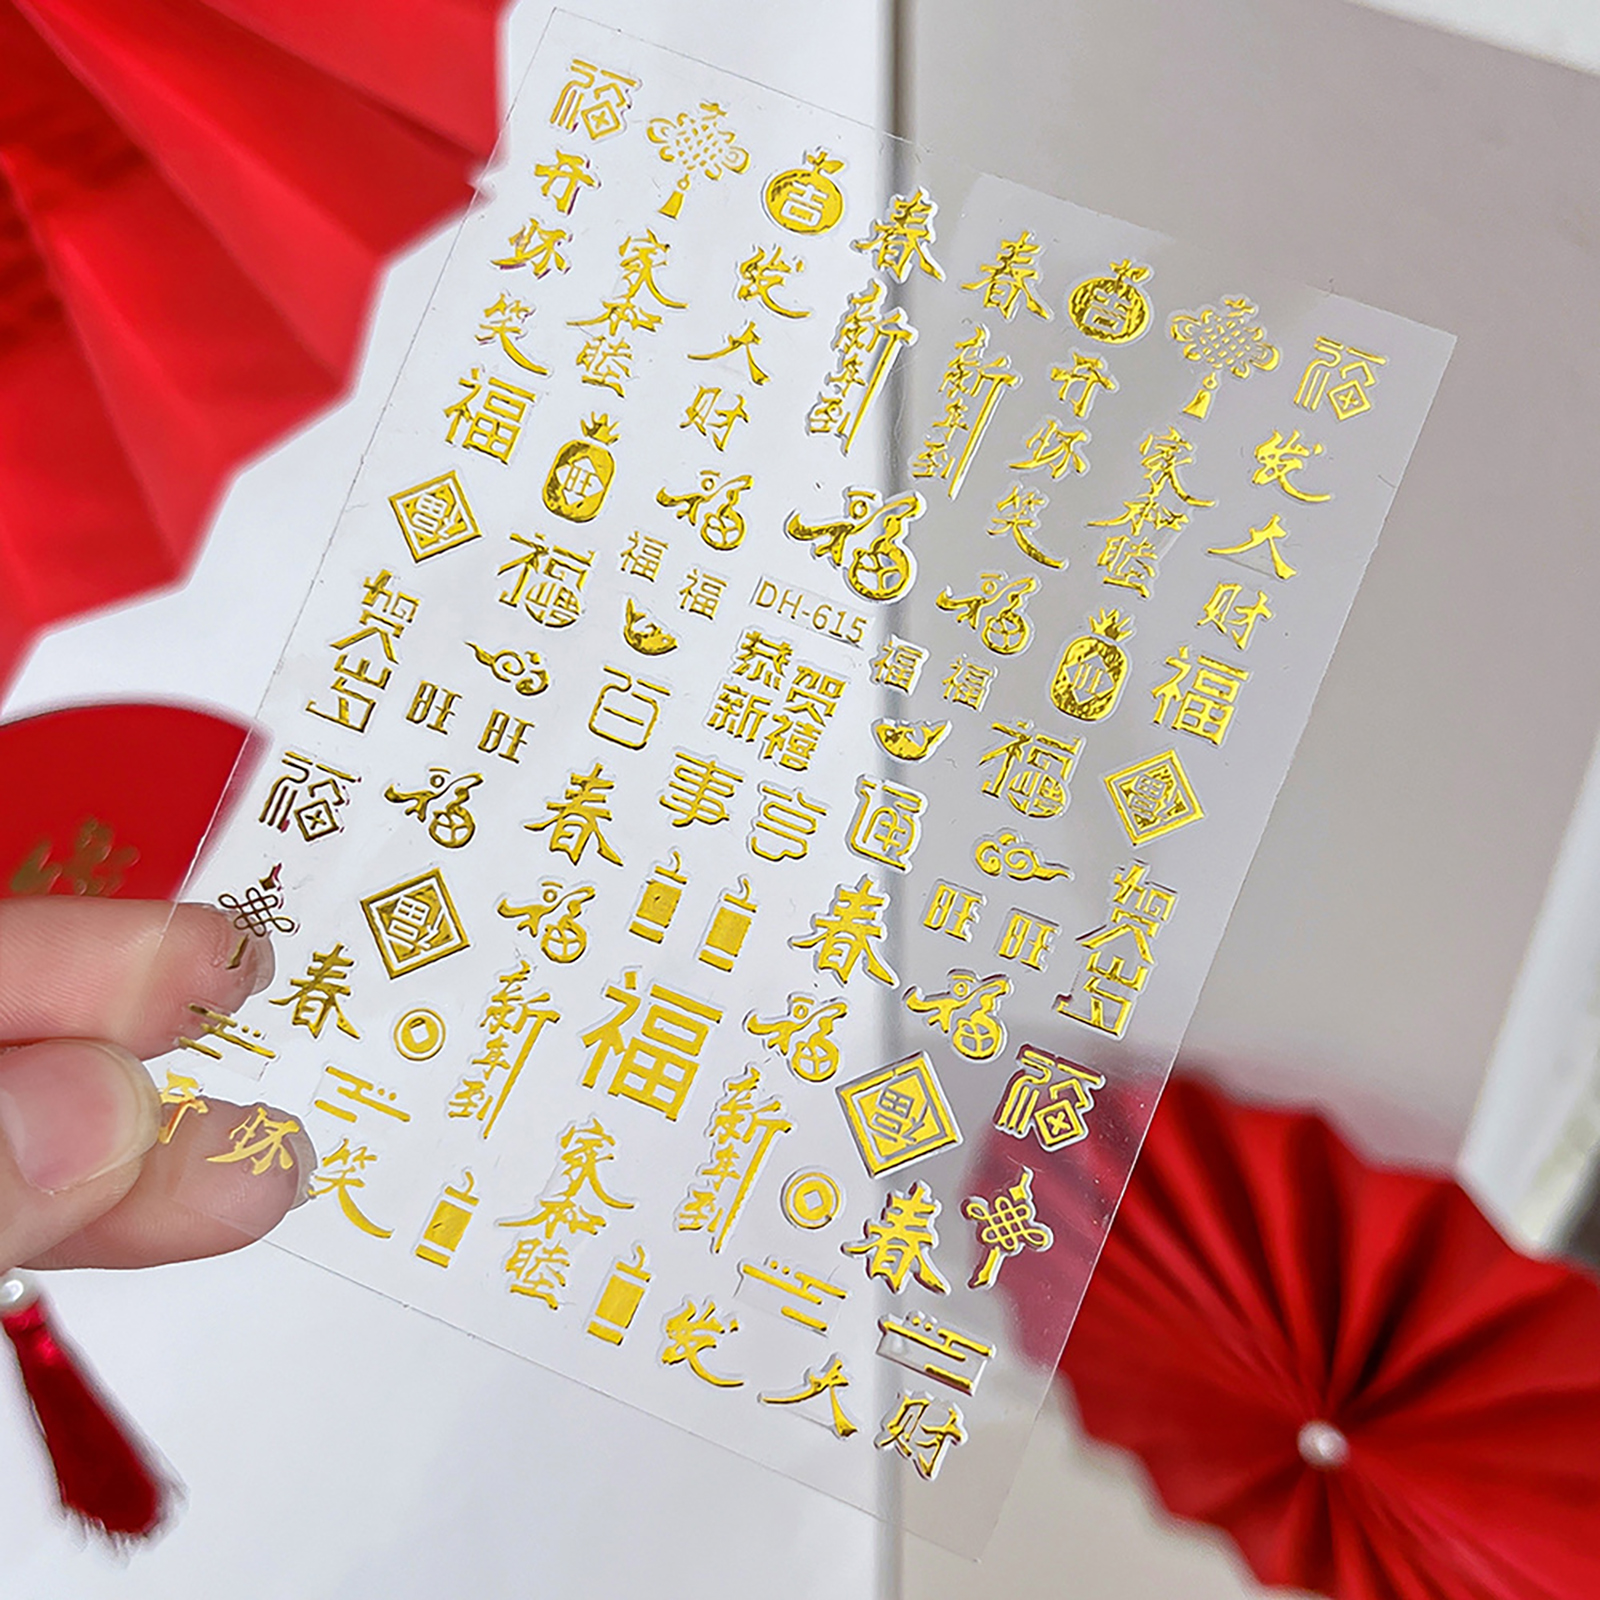 福
吉
春
春
吉
福
开怀笑
家和睦
发大财
新年到
新年到
开怀笑
家和睦
发大财
福
旺
福
福
福
福
福
福
DH-615
恭贺
新禧
福
福
福
福
福
贺岁
旺旺
百事亨通
旺旺
贺岁
福
福
春
春
福
福
福
福
福
福
春
新年到
福
新年到
春
开怀笑
家和睦
发大财